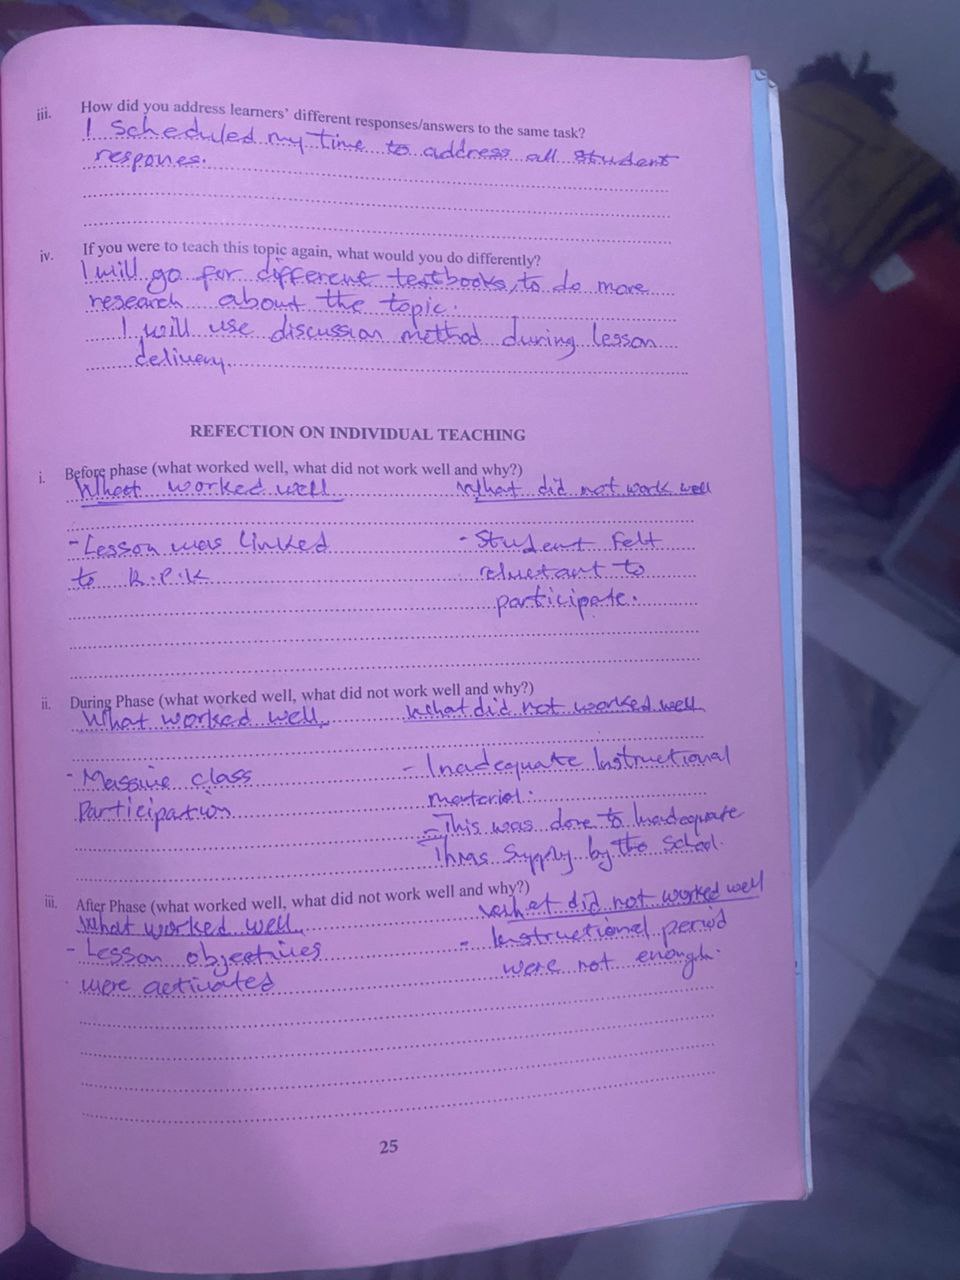 iii. How did you address learners' different responses/answers to the same task?
I scheduled my time to address all student
respones.
iv. If you were to teach this topic again, what would you do differently?
I will go for different textbooks, to do more
research about the topic.
I will use discussion method during lesson
delivery.
REFECTION ON INDIVIDUAL TEACHING
i. Before phase (what worked well, what did not work well and why?)
What worked well What did not work well
- Lesson was linked - Student felt
to R.P.K reluctant to
participate.
ii. During Phase (what worked well, what did not work well and why?)
What worked well What did not worked well
- Massive class - Inadequate Instructional
Participation material.
- This was done to Inadequate
supply by the School.
iii. After Phase (what worked well, what did not work well and why?)
What worked well What did not worked well
- Lesson objectives - Instructional period
were activated were not enough.
25